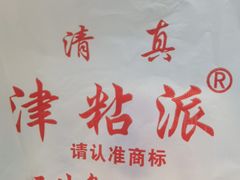 清真
津粘派®
请认准商标